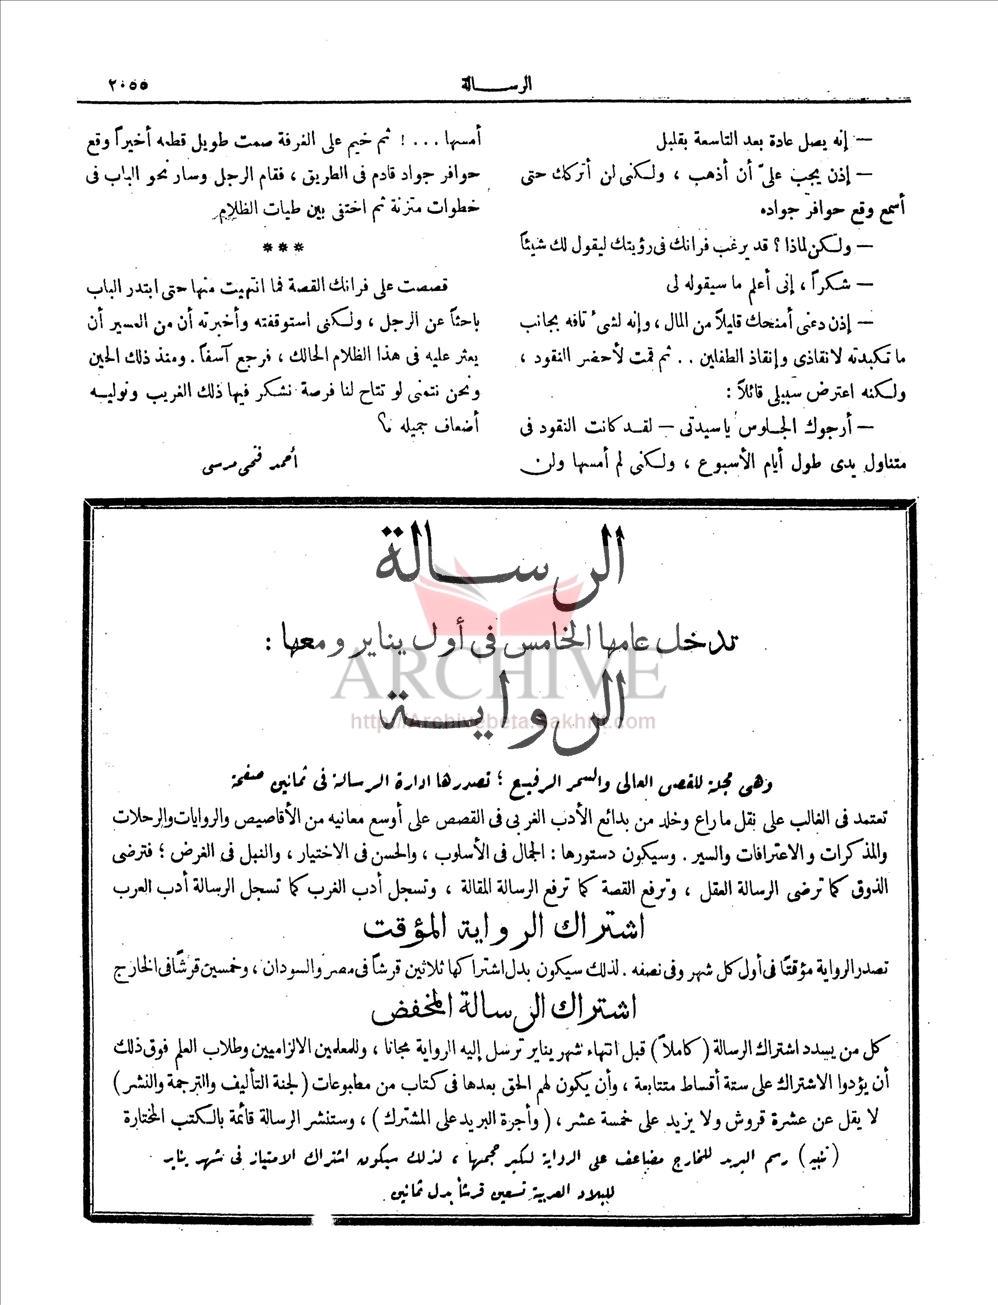 الرسالة
٢٠٥٥
— إنه يصل عادة بعد التاسعة بقليل
— إذن يجب علىّ أن أذهب ، ولكنى لن أتركك حتى
أسمع وقع حوافر جواده
— ولكن لماذا ؟ قد يرغب فرانك فى رؤيتك ليقول لك شيئاً
— شكراً ، إنى أعلم ما سيقوله لى
— إذن دعنى أمنحك قليلاً من المال ، وإنه لشىء تافه بجانب
ما تكبدته لانقاذى وإنقاذ الطفلين . . ثم قمت لأحضر النقود ،
ولكنه اعترض سبيلى قائلاً :
— أرجوك الجلوس يا سيدتى — لقد كانت النقود فى
متناول يدى طول أيام الأسبوع ، ولكنى لم أمسها ولن
أمسها ... ! ثم خيم على الغرفة صمت طويل قطعه أخيراً وقع
حوافر جواد قادم فى الطريق ، فقام الرجل وسار نحو الباب فى
خطوات متزنة ثم اختفى بين طيات الظلام
***
قصصت على فرانك القصة فما انتهيت منها حتى ابتدر الباب
باحثاً عن الرجل ، ولكنى استوقفته وأخبرته أن من العسير أن
يعثر عليه فى هذا الظلام الحالك ، فرجع آسفاً . ومنذ ذلك الحين
ونحن نتمنى لو تتاح لنا فرصة نشكر فيها ذلك الغريب ونوليه
أضعاف جميله ؟
أحمد فتحى مرسى
الرسالة
تدخل عامها الخامس فى أول يناير ومعها :
ARCHIVE
الرواية
http://Archivebeta.Sakhrit.com
وهى مجلة للقصص العالى والسمر الرفيع ؛ تصدرها ادارة الرسالة فى ثمانين صفحة
تعتمد فى الغالب على نقل ما راع وخلد من بدائع الأدب الغربى فى القصص على أوسع معانيه من الأقاصيص والروايات والرحلات
والمذكرات والاعترافات والسير . وسيكون دستورها : الجمال فى الأسلوب ، والحسن فى الاختيار ، والنبل فى الغرض ؛ فترضى
الذوق كما ترضى الرسالة العقل ، وترفع القصة كما ترفع الرسالة المقالة ، وتسجل أدب الغرب كما تسجل الرسالة أدب العرب
اشتراك الرواية المؤقت
تصدر الرواية مؤقتا فى أول كل شهر وفى نصفه . لذلك سيكون بدل اشتراكها ثلاثين قرشاً فى مصر والسودان ، وخمسين قرشاً فى الخارج
اشتراك الرسالة المخفض
كل من يسدد اشتراك الرسالة (كاملاً) قبل انتهاء شهر يناير ترسل إليه الرواية مجانا ، وللمعلمين الالزاميين وطلاب العلم فوق ذلك
أن يؤدوا الاشتراك على ستة أقساط متتابعة ، وأن يكون لهم الحق بعدها فى كتاب من مطبوعات (لجنة التأليف والترجمة والنشر)
لا يقل عن عشرة قروش ولا يزيد على خمسة عشر ، (وأجرة البريد على المشترك) ، وستنشر الرسالة قائمة بالكتب المختارة
(تنبيه) رسم البريد للخارج مضاعف على الرواية لكبر حجمها ، لذلك سيكون اشتراك الامتياز فى شهر يناير
للبلاد العربية تسعين قرشاً بدل ثمانين